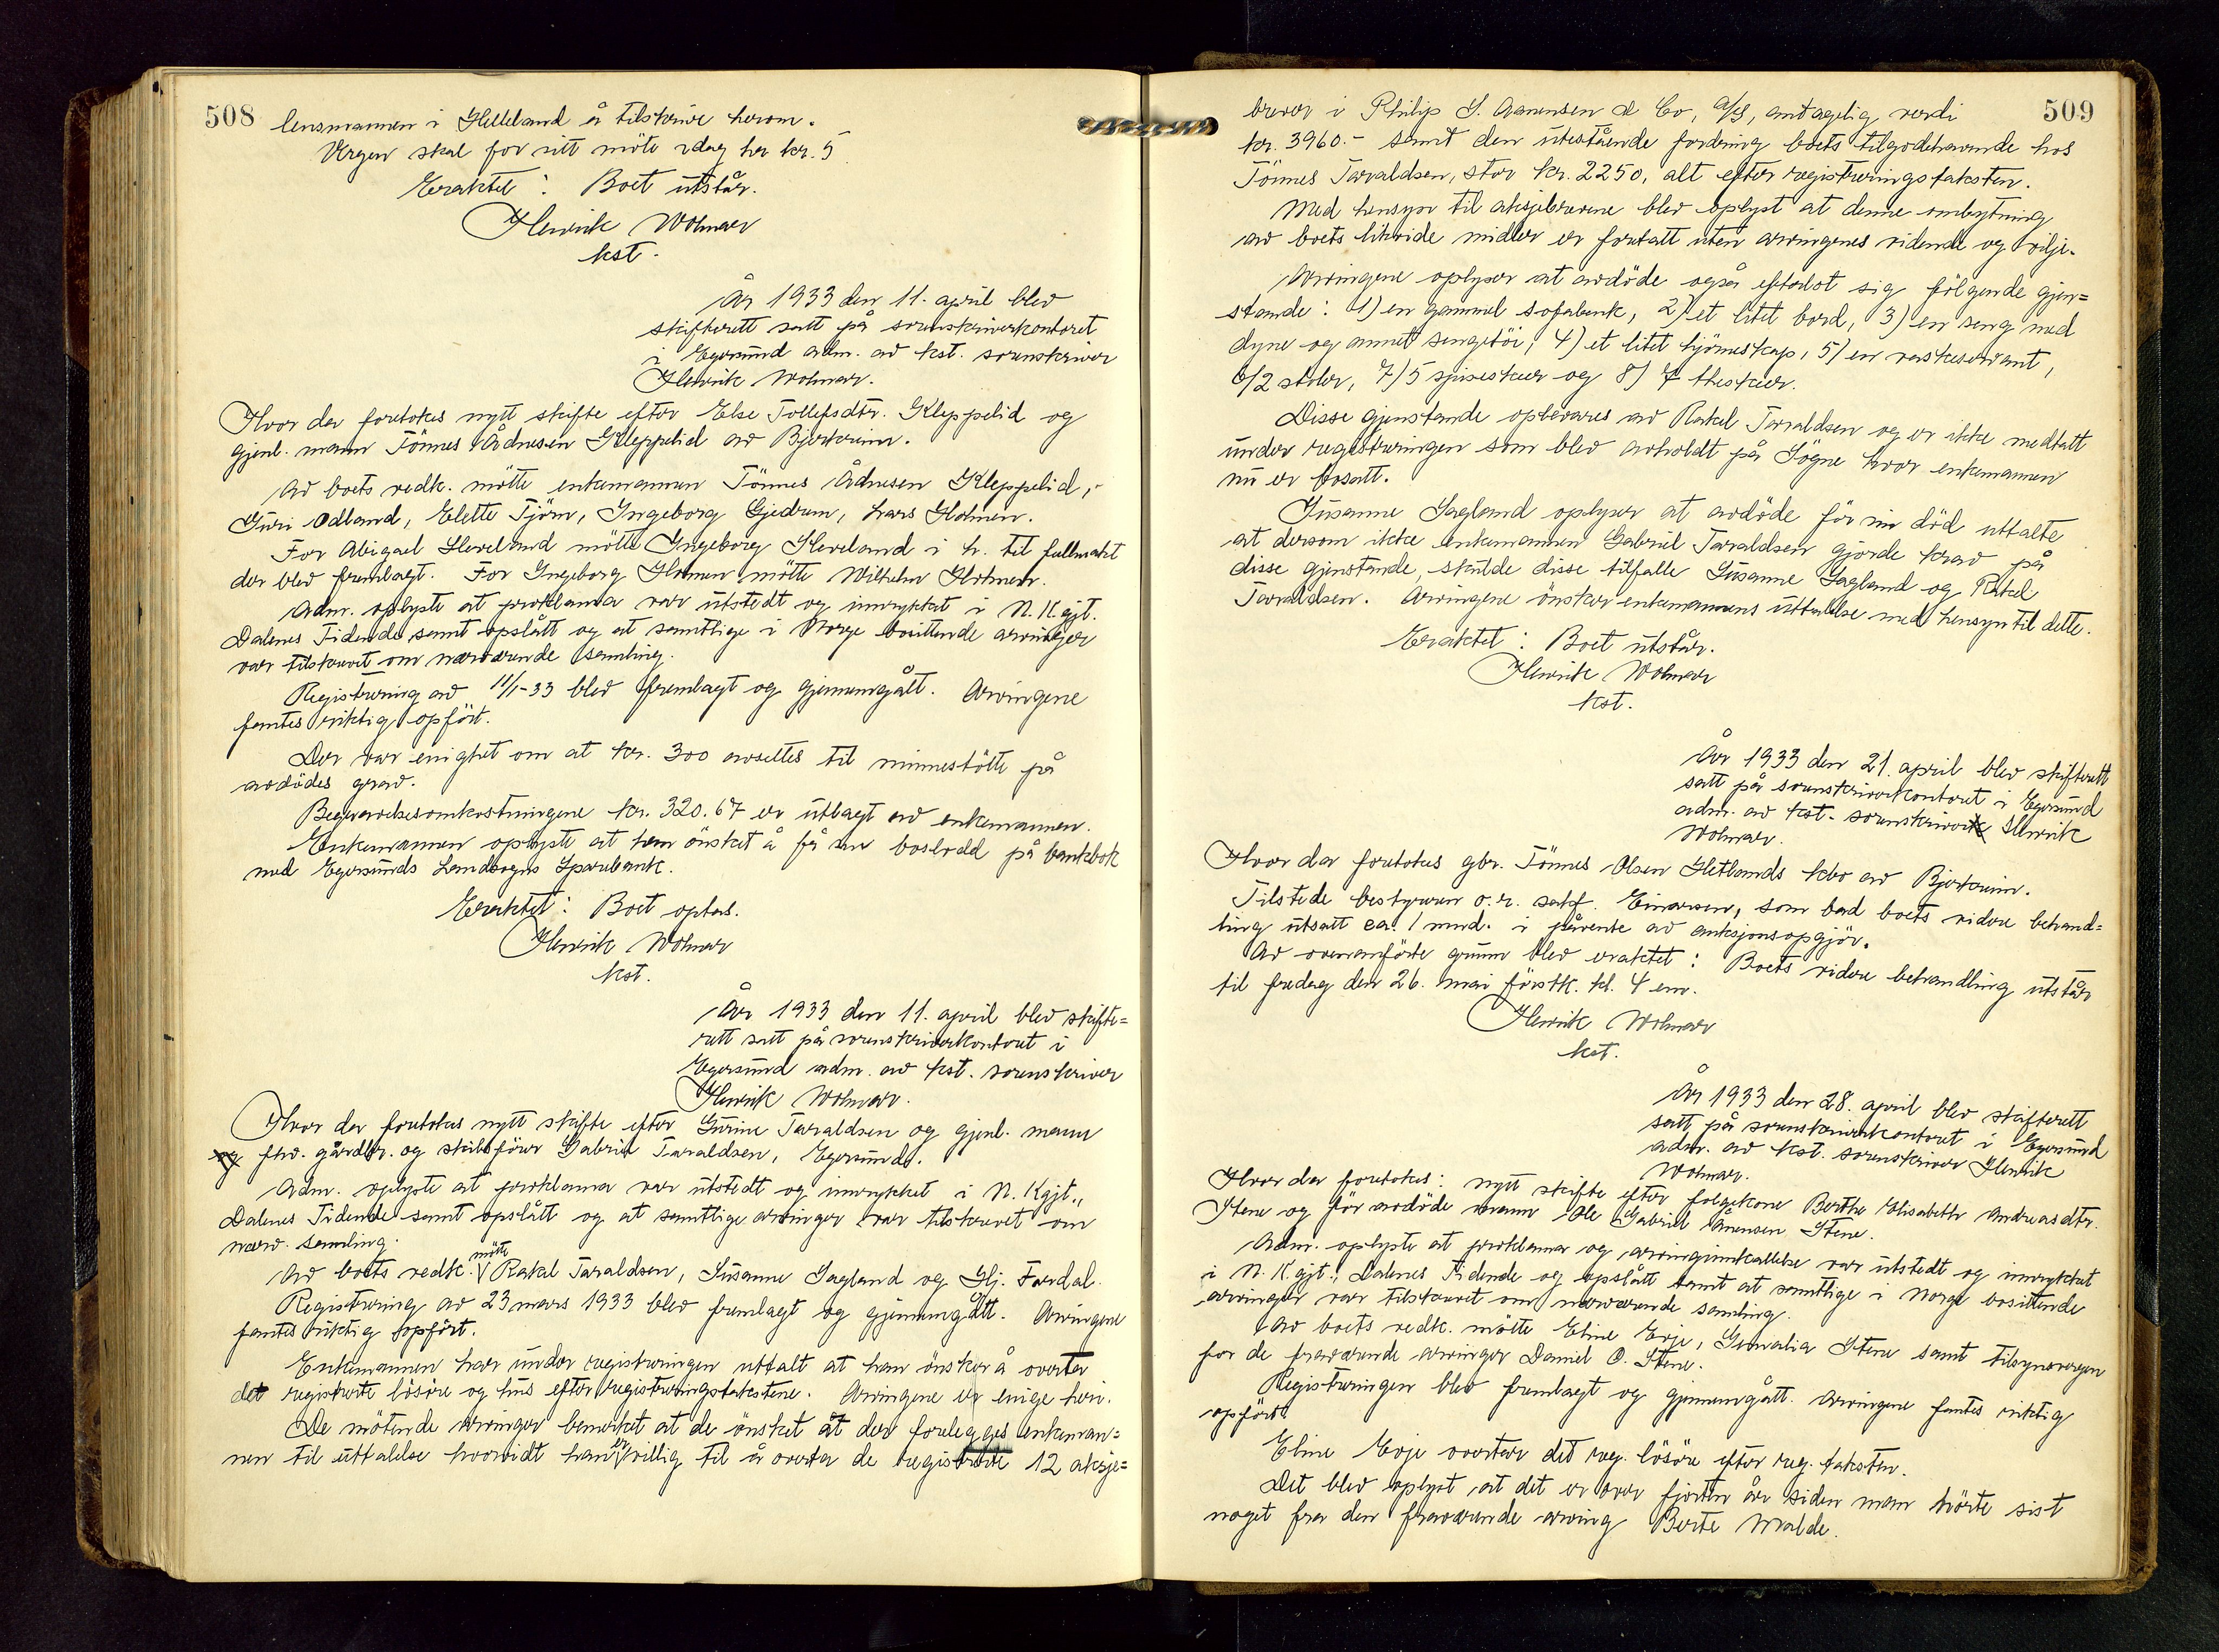 508
lensmannen i Helleland å tilskrive herom.
Vergen skal for sitt möte idag ha kr. 5
Eraktet: Boet utstår.
Henrik Wolmar
kst.
År 1933 den 11. april blev
skifterett satt på sorenskriverkontoret
i Egersund adm. av kst. sorenskriver
Henrik Wolmar.
Hvor da foretokes nytt skifte efter Else Tollefsdtr. Kleppelid og
gjenl. mann Tönnes Ådnesen Kleppelid av Bjerkreim.
Av boets vedk. mötte enkemannen Tönnes Ådnesen Kleppelid,
Guri Odland, Elette Tjörn, Ingeborg Gjedrem, Lars Holmen.
For Abigael Herveland mötte Ingeborg Herveland i h. til fullmakt
der blev fremlagt. For Ingeborg Holmen mötte Wilhelm Holmen.
Adm. oplyste at proklama var utstedt og innrykket i N. K.gjt.
Dalenes Tidende samt opslått og at samtlige i Norge bosittende arvinger
var tilskrevet om nærværende samling.
Registrering av 11/1-33 blev fremlagt og gjennemgått. Arvingene
fantes riktig opfört.
Der var enighet om at kr. 300 avsettes til minnestötte på
avdödes grav.
Begravelsesomkostningene kr. 320.67 er utlagt av enkemannen.
Enkemannen oplyste at han önsket å få sin boslodd på bankbok
med Egersunds Landsogns Sparebank.
Eraktet: Boet optas.
Henrik Wolmar
kst.
År 1933 den 11. april blev skifte=
rett satt på sorenskriverkontoret i
Egersund adm. av kst. sorenskriver
Henrik Wolmar.
Hvor da foretokes nytt skifte efter Gurine Taraldsen og gjenl. mann
og fhv. gårdbr. og skibsförer Gabriel Taraldsen, Egersund.
Adm. oplyste at proklama var utstedt og innrykket i N. Kgjt.,
Dalenes Tidende samt opslått og at samtlige arvinger var tilskrevet om
nærv. samling.
Av boets vedk. mötte Rakel Taraldsen, Susanne Sagland og Hj. Fardal.
Registrering av 23 mars 1933 blev fremlagt og gjennemgått. Arvingene
fantes riktig opfört.
Enkemannen har under registreringen uttalt at han önsker å overta
det registrerte lösöre og hus efter registreringstakstene. Arvingene er enige heri.
De mötende arvinger bemerket at de önsket at der forelegges enkeman=
nen til uttalelse hvorvidt han er villig til å overta de registrerte 12 aksje=
509
brever i Philip S. Aanensen & Co, A/S, antagelig verdi
kr. 3960.- samt den utestående fordring boets tilgodehavende hos
Tönnes Taraldsen, stor kr. 2250, alt efter registreringstaksten.
Med hensyn til aksjebrevene blev oplyst at denne ombytning
av boets likvide midler er foretatt uten arvingenes vidende og vilje.
Arvingene oplyser at avdöde også efterlot sig fölgende gjen=
stande: 1) en gammel sofabenk, 2) et litet bord, 3) en seng med
dyne og annet sengetöi, 4) et litet hjörneskap, 5) en vaskeservant,
6/2 stoler, 7/5 spiseskeer og 8) 7 theskeer.
Disse gjenstande opbevares av Rakel Taraldsen og er ikke medtatt
under registreringen som blev avholdt på Sögne hvor enkemannen
nu er bosatt.
Susanne Sagland oplyser at avdöde för sin död uttalte
at dersom ikke enkemannen Gabriel Taraldsen gjorde krav på
disse gjenstande, skulde disse tilfalle Susanne Sagland og Rakel
Taraldsen. Arvingene önsker enkemannens uttalelse med hensyn til dette.
Eraktet: Boet utstår.
Henrik Wolmar
kst.
År 1933 den 21. april blev skifterett
satt på sorenskriverkontoret i Egersund
adm. av kst. sorenskriver Henrik
Wolmar.
Hvor da foretokes gbr. Tönnes Olsen Hetlands kbo av Bjerkreim.
Tilstede bestyreren o.r. sakf. Einarsen, som bad boets videre behand=
ling utsatt ca. 1 mnd. i påvente av auksjonsopgjör.
Av ovenanförte grunn blev eraktet: Boets videre behandling utstår
til fredag den 26. mai förstk. kl. 4 em.
Henrik Wolmar
kst.
År 1933 den 28. april blev skifterett
satt på sorenskriverkontoret i Egersund
adm. av kst. sorenskriver Henrik
Wolmar.
Hvor da foretokes: nytt skifte efter folgekone Berthe Elisabeth Andreasdtr.
Stene og för avdöde mann Ole Gabriel Aanensen Stene.
Adm. oplyste at proklama og arvinginnkallelse var utstedt og innrykket
i N. K.gjt., Dalenes Tidende og opslått samt at samtlige i Norge bosittende
arvinger var tilskrevet om nærværende samling.
Av boets vedk. mötte Eline Eeje, Gunvalia Stene samt tilsynsvergen
for de fraværende arvinger Daniel O. Stene.
Registreringen blev fremlagt og gjennemgått. Arvingene fantes riktig
opfört.
Eline Eeje overtar det reg. lösöre efter reg. taksten.
Det blev oplyst at det er over fjorten år siden man hörte sist
noget fra den fraværende arving Berte Malde.